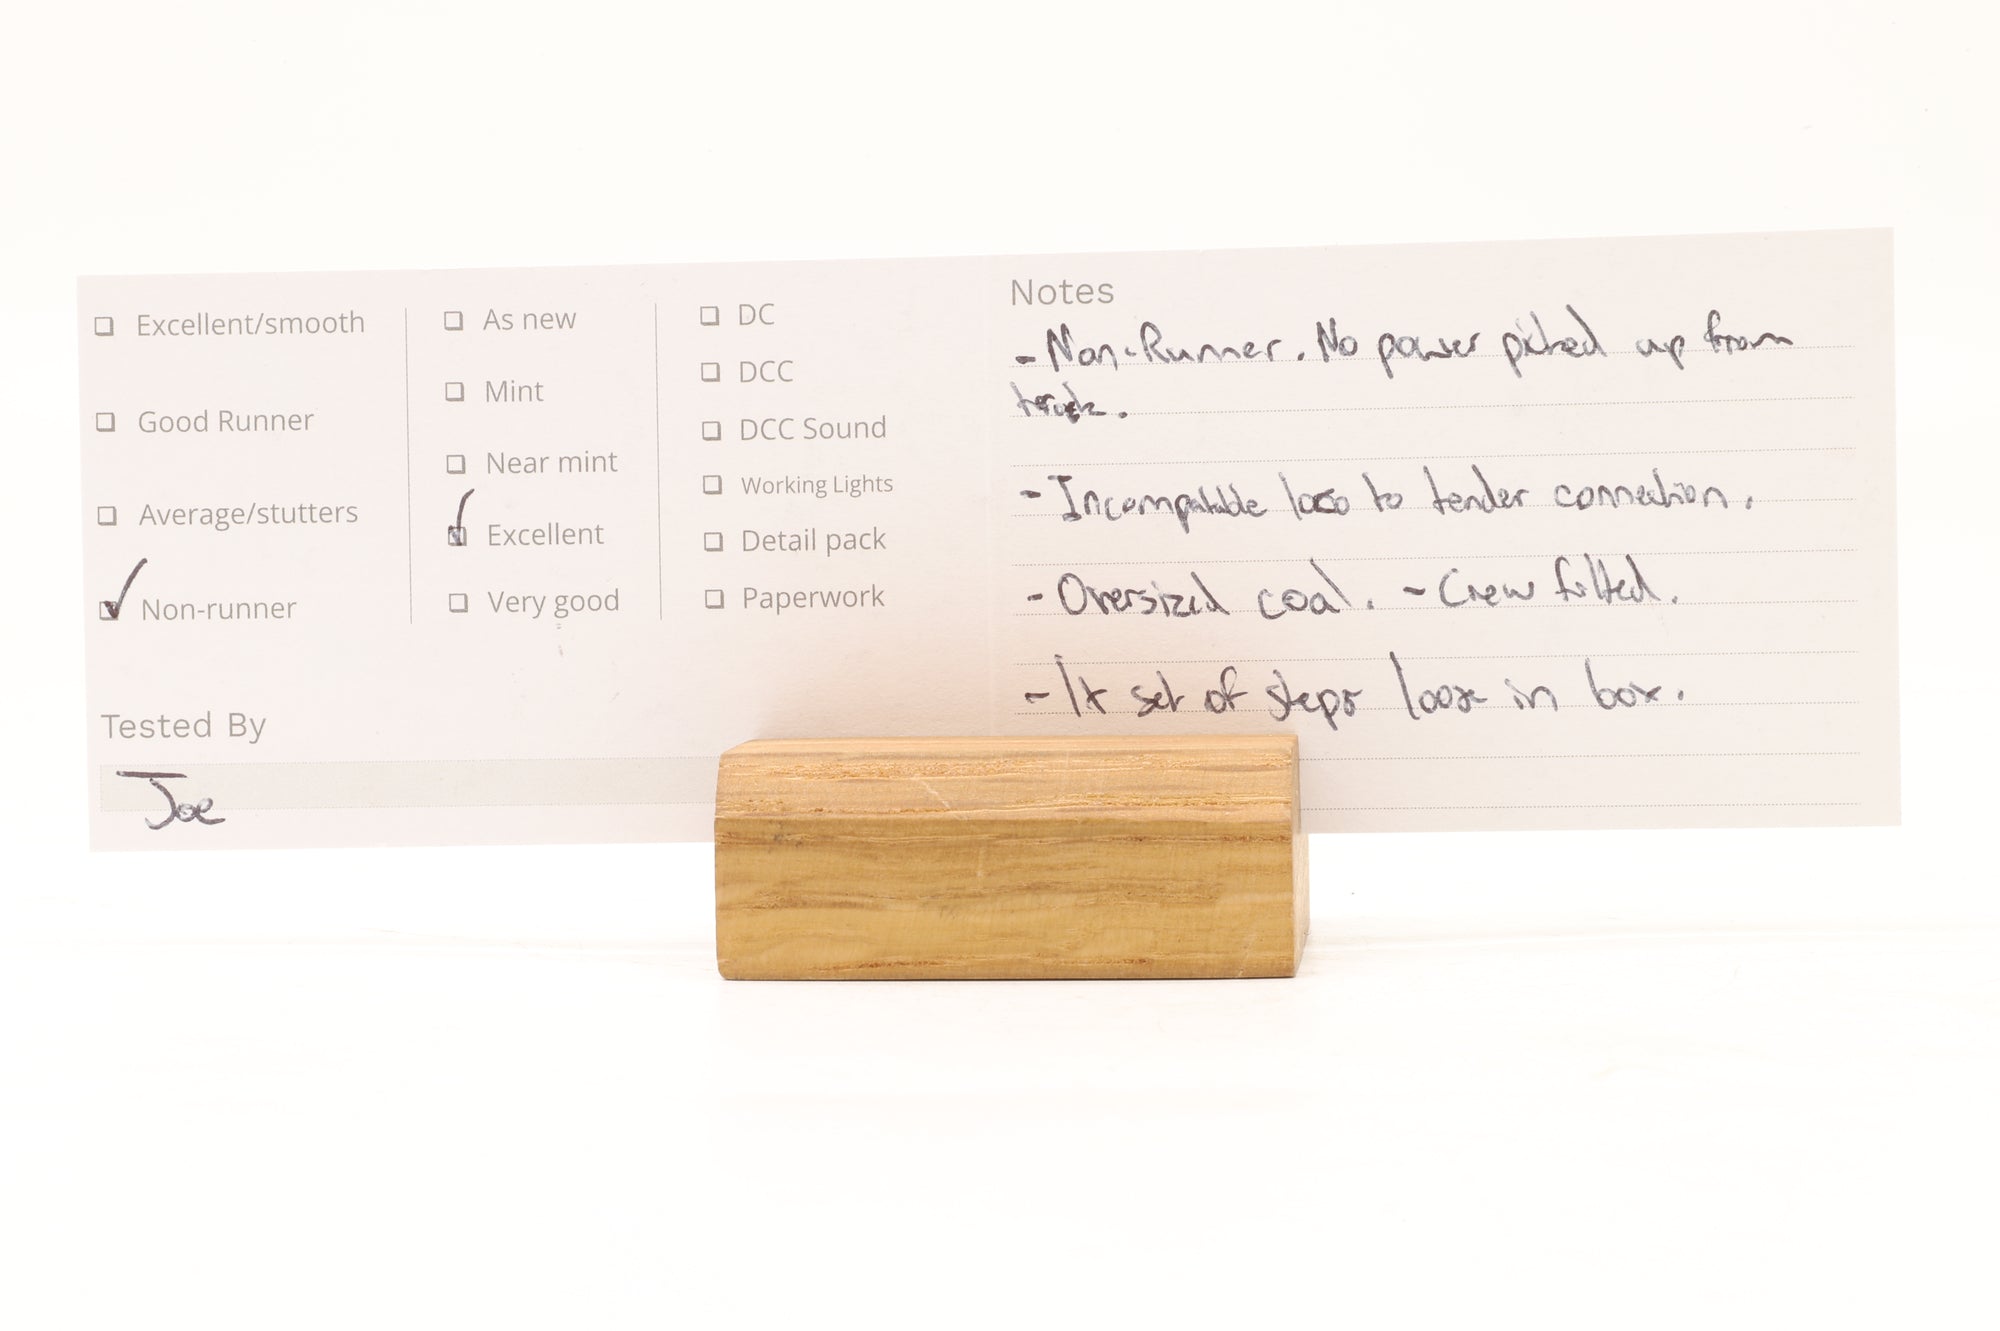 Excellent/smooth
Good Runner
Average/stutters
Non-runner
As new
Mint
Near mint
Excellent
Very good
DC
DCC
DCC Sound
Working Lights
Detail pack
Paperwork
Tested By
Joe
Notes
- Non-Runner. No power picked up from
track.
- Incompatable loco to tender connection.
- Oversized coal. - Crew fitted.
- 1x set of steps loose in box.